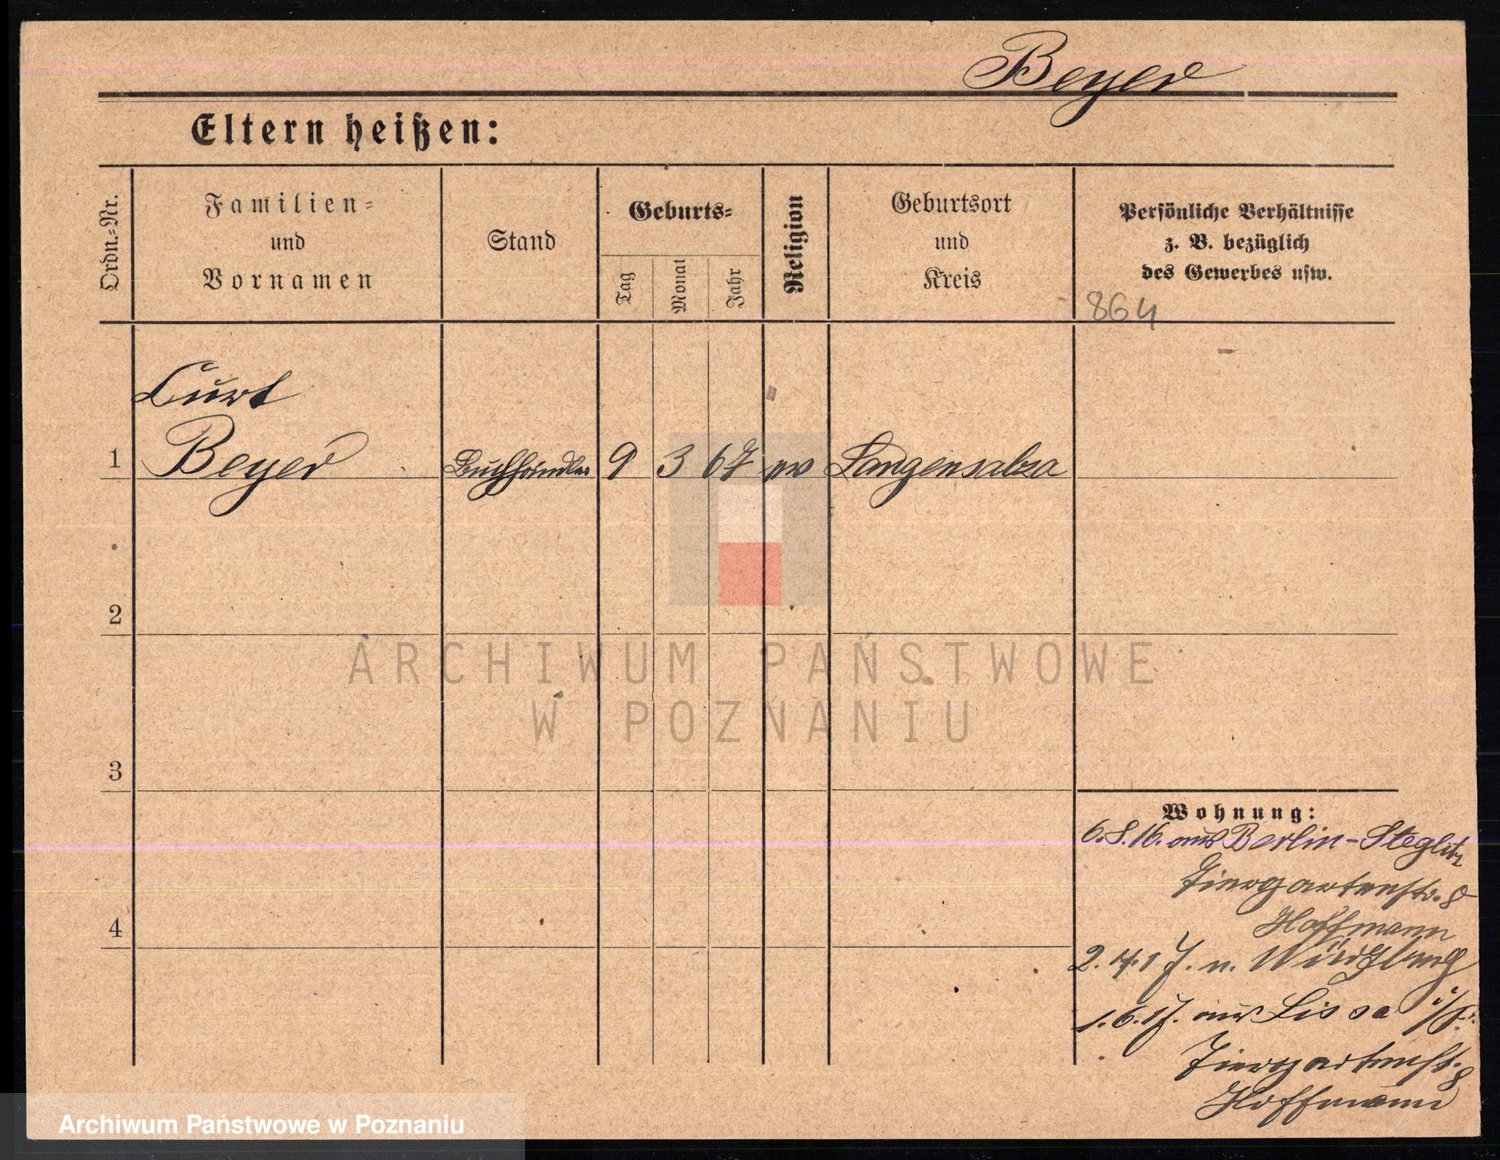 Beyer
Eltern heißen:
Ordn.-Nr.
Familien-
und
Vornamen
Stand
Geburts-
Tag
Monat
Jahr
Religion
Geburtsort
und
Kreis
Persönliche Verhältnisse
z. B. bezüglich
des Gewerbes usw.
864
Curt
1 Beyer Buchhändler 9 3 67 ev Langensalza
2
3
4
Wohnung:
6.8.16. aus Berlin-Steglitz
Tiergartenstr. 8
Hoffmann
2.4.17. n.
1.6.17. aus Lissa i/P.
Tiergartenstr. 8
Hoffmann
ARCHIWUM PAŃSTWOWE
W POZNANIU
Archiwum Państwowe w Poznaniu